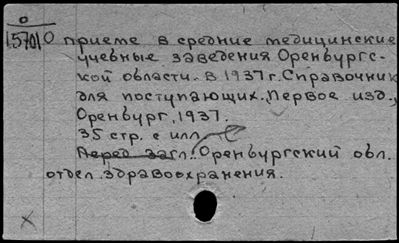 О
15701 О приеме в средние медицинские
учебные заведения Оренбургс-
кой области. В 1937 г. Справочник
для поступающих. Первое изд.,
Оренбург, 1937.
35 стр. с илл.
Перед загл. Оренбургский обл.
отдел здравоохранения.